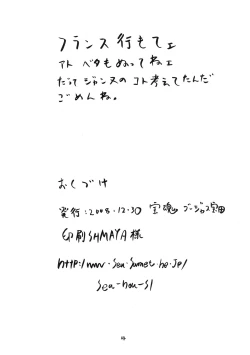 フランス行もてェ
アト ベタもぬってねェ
だってジャンヌのコト考えてたんだ
ごめんね。
おくづけ
発行:2008.12.30
印刷SHMAYA様
http://www.sea.sumet.ne.jp/
sea-hou-s/